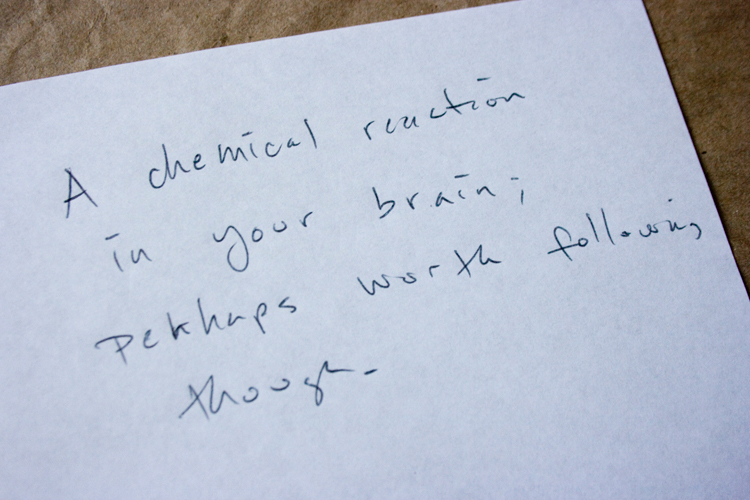 A chemical reaction
in your brain;
Perhaps worth following
though.